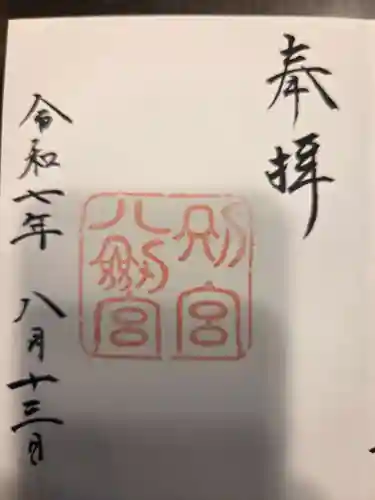 奉拝
別宮
八劔宮
令和七年 八月十三日